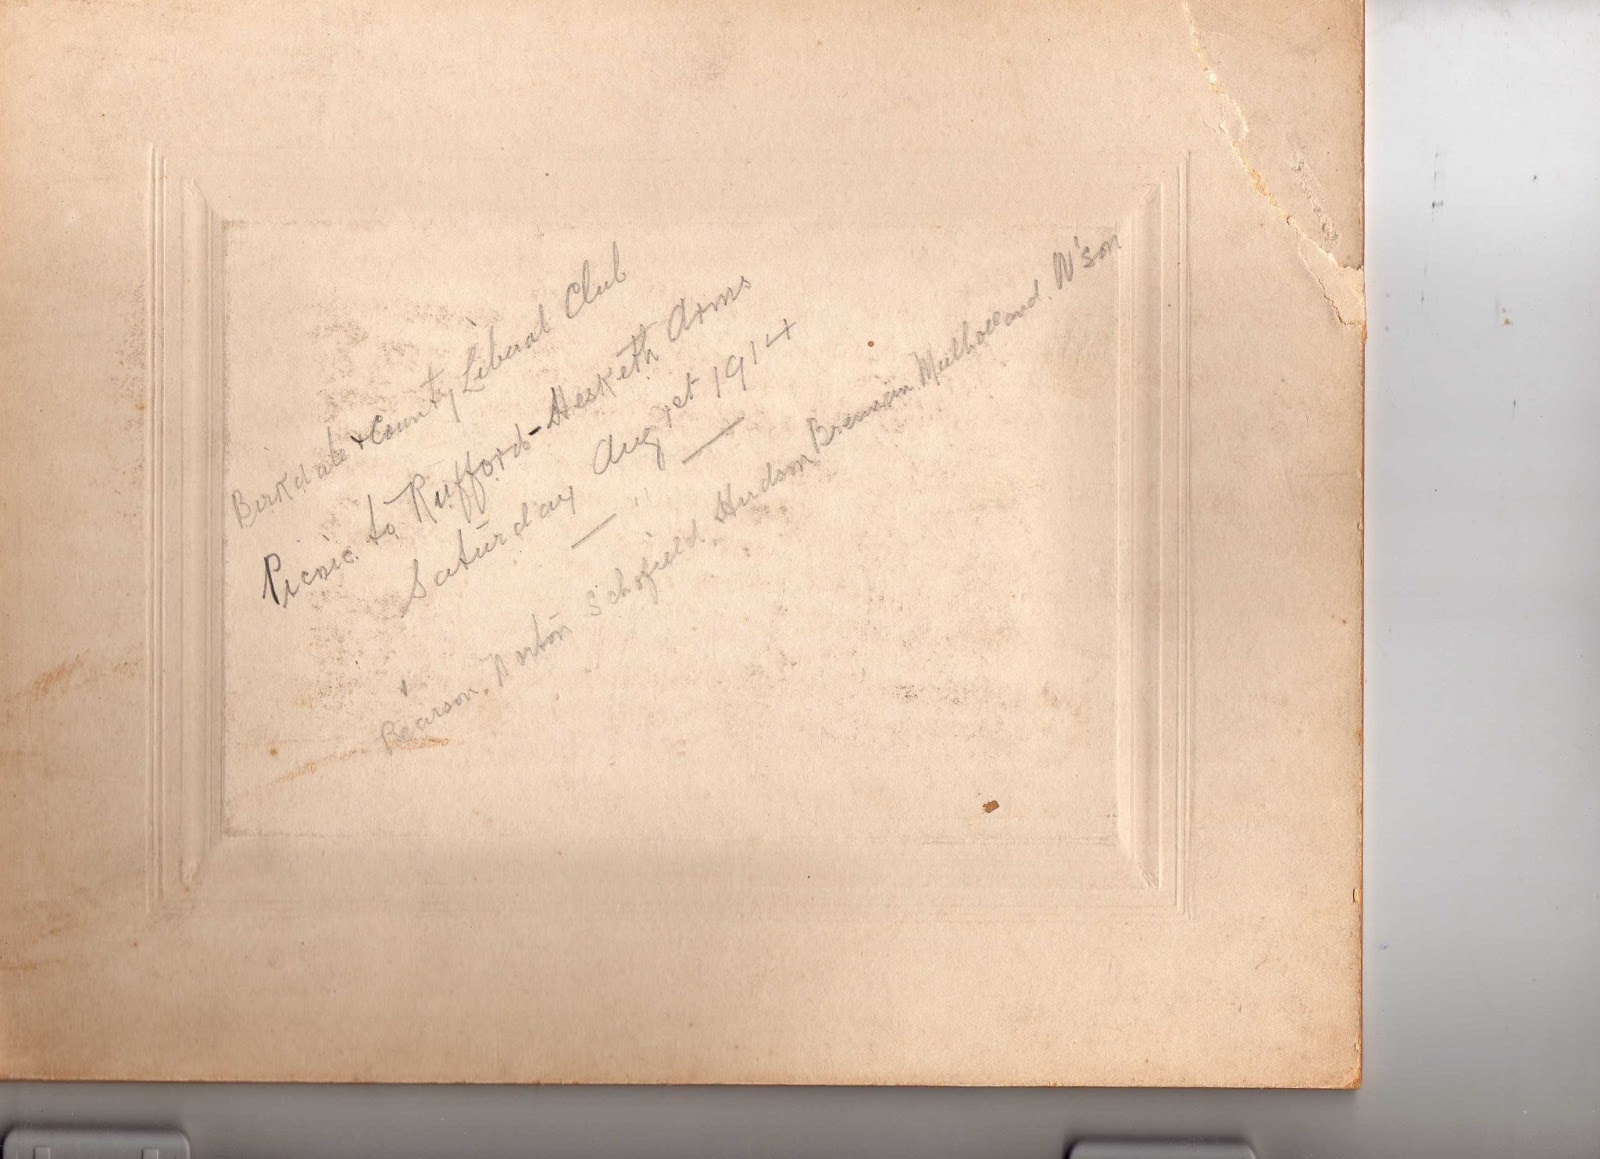 Birkdale & County Liberal Club
Picnic to Rufford - Hesketh Arms
Saturday Aug 1st 1914
Pearson, Norton Schofield, Hudson Brennan Mulholland. W'son